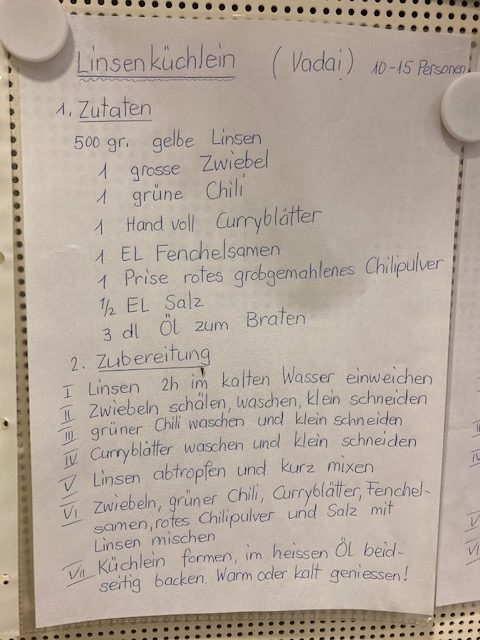 Linsenküchlein (Vadai) 10-15 Personen
1. Zutaten
500 gr. gelbe Linsen
1 grosse Zwiebel
1 grüne Chili
1 Hand voll Curryblätter
1 EL Fenchelsamen
1 Prise rotes grobgemahlenes Chilipulver
1/2 EL Salz
3 dl Öl zum Braten
2. Zubereitung
I Linsen 2h im kalten Wasser einweichen
II Zwiebeln schälen, waschen, klein schneiden
III grüner Chili waschen und klein schneiden
IV Curryblätter waschen und klein schneiden
V Linsen abtropfen und kurz mixen
VI Zwiebeln, grüner Chili, Curryblätter, Fenchel-
samen, rotes Chilipulver und Salz mit
Linsen mischen
VII Küchlein formen, im heissen Öl beid-
seitig backen. Warm oder kalt geniessen!